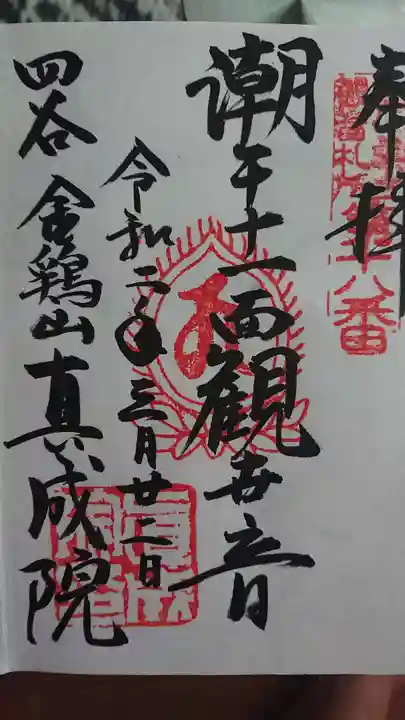 奉拝
潮干十一面観世音
令和二年三月廿二日
四谷 金鶏山 真成院
札所
十八番